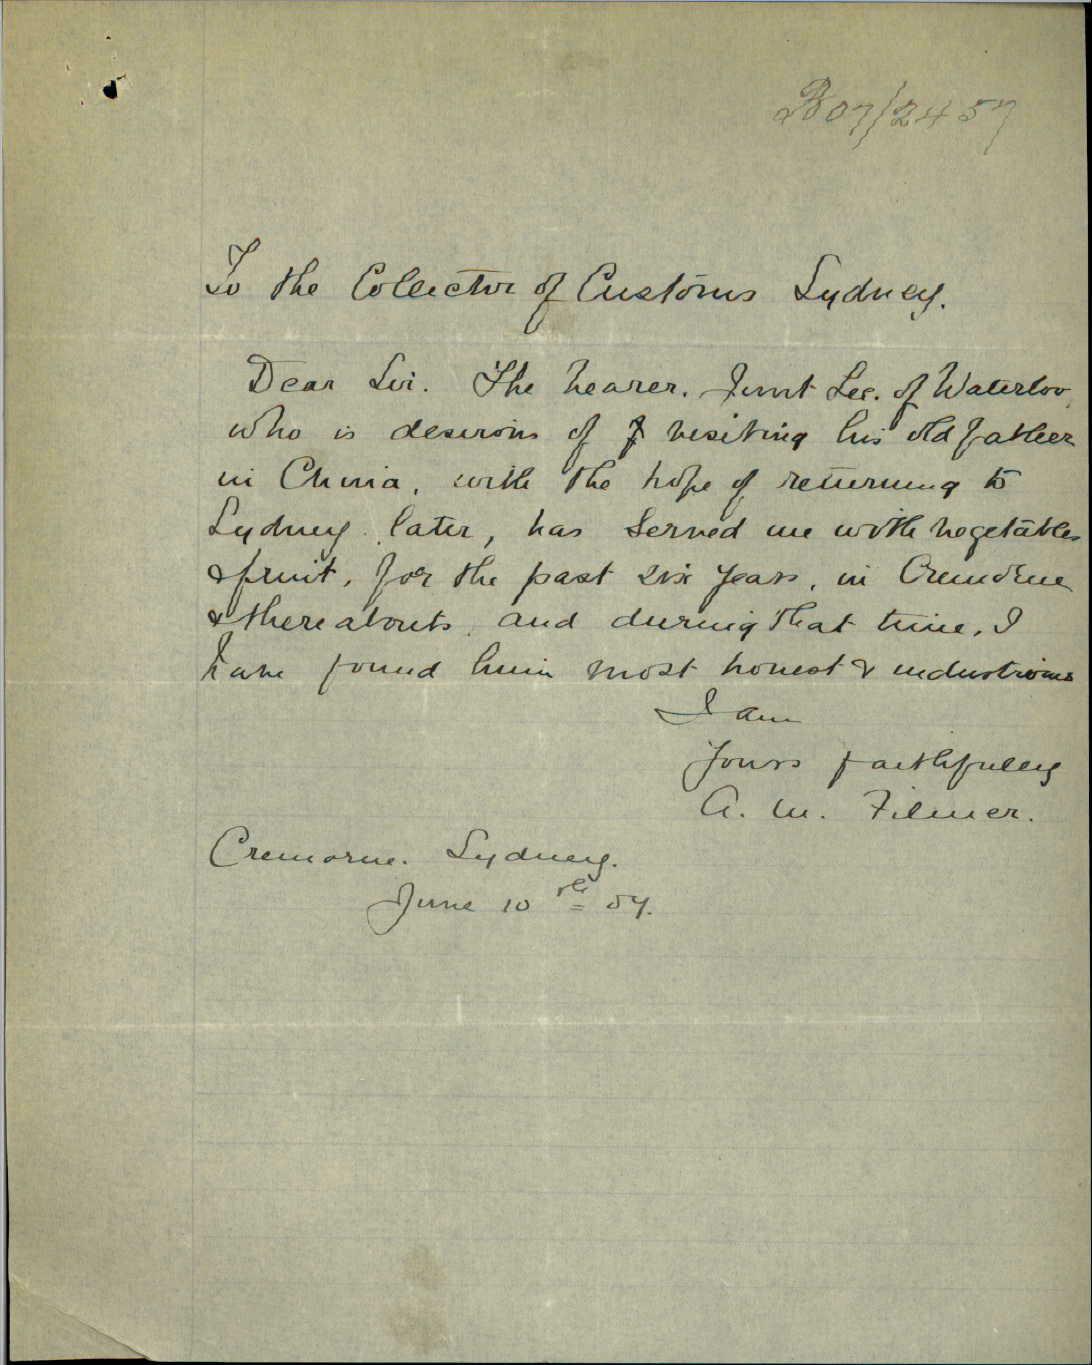 B07/2457
To the Collector of Customs Sydney.
Dear Sir. The bearer. Lee. of Waterloo,
who is desirous of visiting his old father
in China, with the hope of returning to
Sydney later, has served me with vegetables
& fruit, for the past six years, in Cremorne
& thereabouts, and during that time, I
have found him most honest & industrious
I am
Yours faithfully
A. M. Filmer.
Cremorne. Sydney.
June 10th 07.